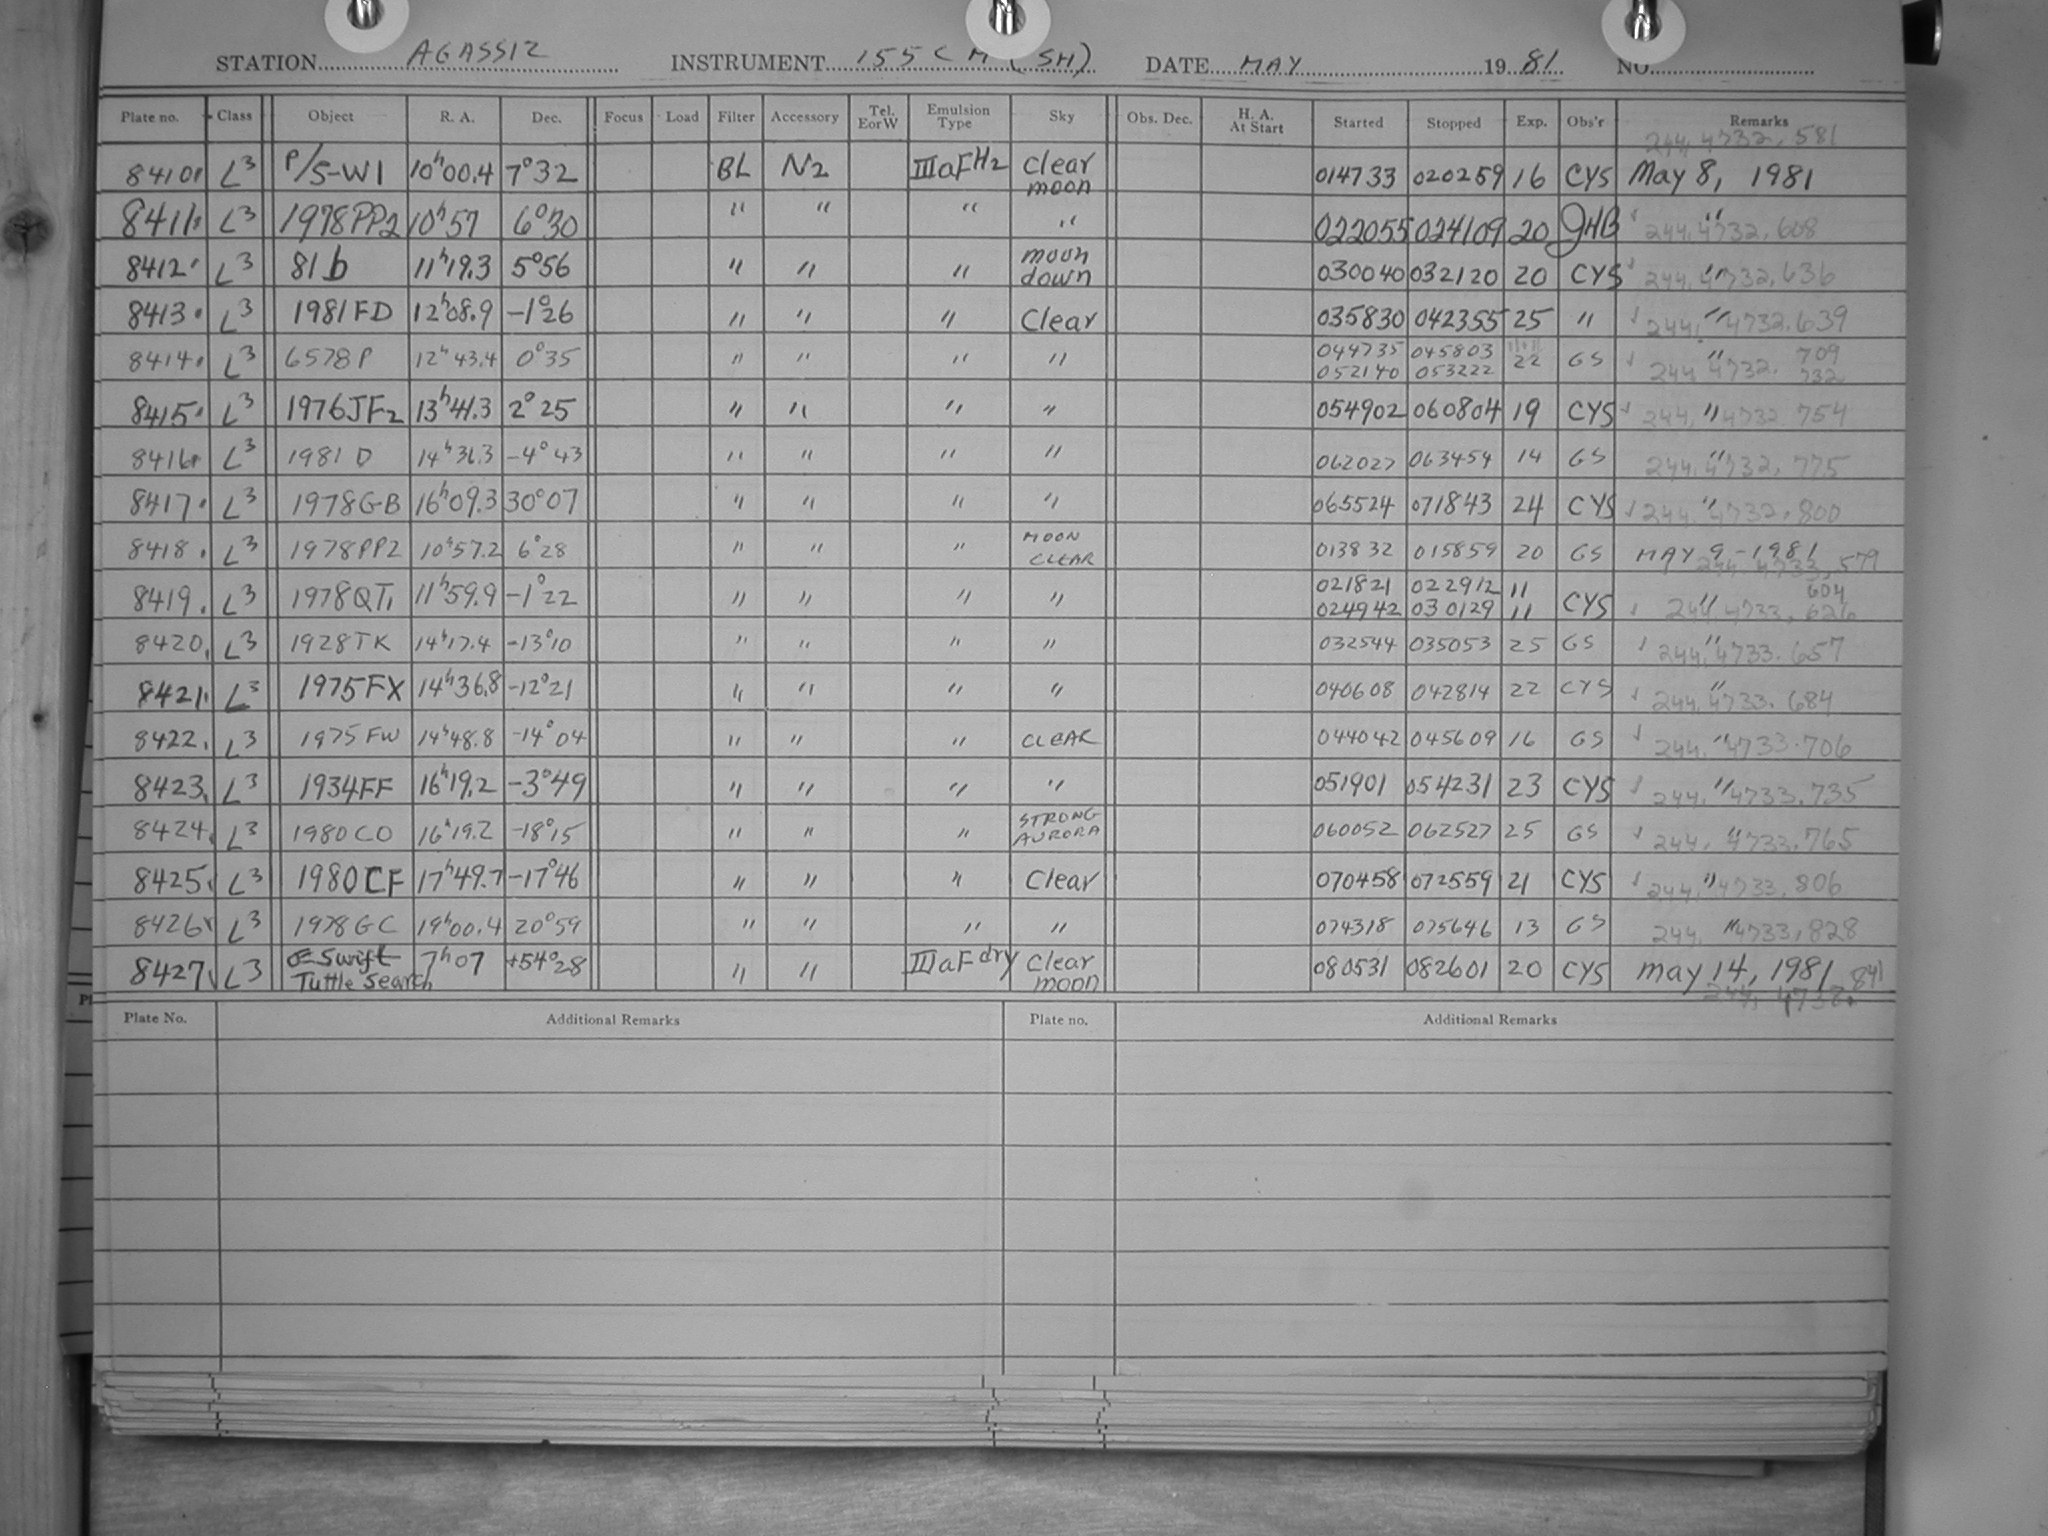 STATION AGASSIZ INSTRUMENT 155 CM (SH) DATE MAY 19 81 NO.
Plate no. Class Object R. A. Dec. Focus Load Filter Accessory Tel. EorW Emulsion Type Sky Obs. Dec. H. A. At Start Started Stopped Exp. Obs'r Remarks
244,4732,581
8410 L3 P/S-W1 10h00.4 7°32 BL N2 IIIaFH2 Clear moon 014733 020259 16 CYS May 8, 1981
8411 L3 1978PP2 10h57 6°30 " " " " 022055 024109 20 JHB " 244,4732,608
8412 L3 81b 11h19.3 5°56 " " " moon down 030040 032120 20 CYS " 244,4732,636
8413 L3 1981FD 12h08.9 -1°26 " " " Clear 035830 042355 25 " " 244,4732.639
8414 L3 6578P 12h43.4 0°35 " " " " 044735 045803 22 GS " 244,4732. 709
052140 053222 732
8415 L3 1976JF2 13h41.3 2°25 " " " " 054902 060804 19 CYS " 244,4732 754
8416 L3 1981 D 14h31.3 -4°43 " " " " 062027 063454 14 GS " 244,4732,775
8417 L3 1978GB 16h09.3 30°07 " " " " 065524 071843 24 CYS " 244,4732,800
8418 L3 1978PP2 10h57.2 6°28 " " " MOON CLEAR 013832 015859 20 GS MAY 9-1981
244 4733,579
8419 L3 1978QT1 11h59.9 -1°22 " " " " 021821 022912 11 CYS " 604
024942 030129 11 244 4733,626
8420 L3 1928TK 14h17.4 -13°10 " " " " 032544 035053 25 GS " 244,4733.657
8421 L3 1975FX 14h36.8 -12°21 " " " " 040608 042814 22 CYS " 244,4733.684
8422 L3 1975FW 14h48.8 -14°04 " " " CLEAR 044042 045609 16 GS " 244,4733.706
8423 L3 1934FF 16h19.2 -3°49 " " " " 051901 054231 23 CYS " 244,4733.735
8424 L3 1980CO 16h19.2 -18°15 " " " STRONG AURORA 060052 062527 25 GS " 244,4733.765
8425 L3 1980CF 17h49.7 -17°46 " " " Clear 070458 072559 21 CYS " 244,4733,806
8426 L3 1978GC 19h00.4 20°59 " " " " 074318 075646 13 GS " 244,4733,828
8427 L3 Swift Tuttle Search 7h07 +54°28 " " IIIaF dry Clear moon 080531 082601 20 CYS May 14, 1981
244,4738.841
Plate No. Additional Remarks Plate no. Additional Remarks